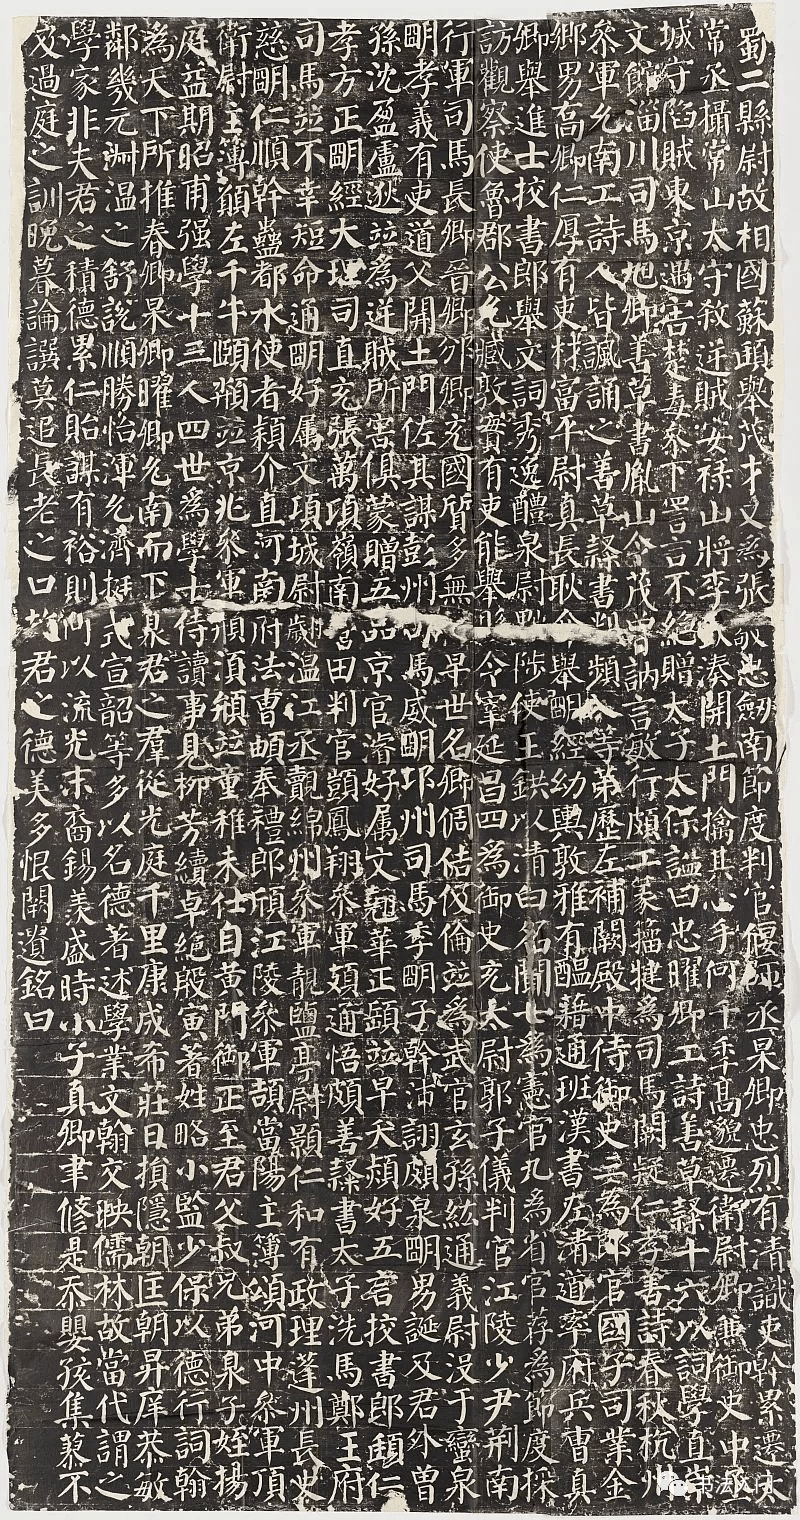 蜀二縣尉故相國蘇頲舉茂才又為張敬忠劍南節度判官偃師丞杲卿忠烈有清識吏幹累遷太
常丞攝常山太守殺逆賊安祿山將李欽湊開土門擒其心手何千季高邈遷衛尉卿兼御史中丞
城守陷賊東京遇害楚毒參下詈言不絕贈太子太保諡曰忠曜卿工詩善草隸十六以詞學直崇
文館淄川司馬旭卿善草書胤山令茂曾訥言敏行頗工篆籀犍為司馬闕疑仁孝善詩春秋杭州
參軍允南工詩人皆諷誦之善草隸書判頻入等第歷左補闕殿中侍御史三為郎官國子司業金
鄉男喬卿仁厚有吏材富平尉真長耿介舉明經幼輿敦雅有醞藉通班漢書左清道率府兵曹真
卿舉進士挍書郎舉文詞秀逸醴泉尉黜陟使王鉷以清白名聞七為憲官九為省官荐為節度採
訪觀察使魯郡公允臧敦實有吏能舉縣令宰延昌四為御史充太尉郭子儀判官江陵少尹荊南
行軍司馬長卿晉卿邠卿充國質多無祿早世名卿倜佶伋倫並為武官玄孫紘通義尉沒于蠻泉
明孝義有吏道父開土門佐其謀彭州司馬威明邛州司馬季明子幹沛詡頗泉明男誕及君外曾
孫沈盈盧逖並為逆賊所害俱蒙贈五品京官濬好属文翹華正頤並早夭熲好五言挍書郎頲仁
孝方正明經大理司直充張萬頃嶺南營田判官顗鳳翔參軍頍通悟頗善隸書太子洗馬鄭王府
司馬並不幸短命通明好属文項城尉翽溫江丞覿綿州參軍靚鹽亭尉顥仁和有政理蓬州長史
慈明仁順幹蠱都水使者穎介直河南府法曹頔奉禮郎頎江陵參軍頡當陽主簿頌河中參軍頂
衛尉主簿願左千牛頤顙並京兆參軍須頲並童稚未仕自黃門御正至君父叔兄弟泉子姪揚
庭益期昭甫強學十三人四世為學士侍讀事見柳芳續卓絕殷寅著姓略小監少保以德行詞翰
為天下所推春卿杲卿曜卿允南而下泉君之羣從光庭千里康成希莊日損隱朝匡朝昇庠恭敏
鄰幾元淑溫之舒說順勝怡渾允濟挺式宣韶等多以名德著述學業文翰交映儒林故當代謂之
學家非夫君之積德累仁貽謀有裕則何以流光末裔錫羨盛時小子真卿聿脩是忝嬰孩集蓼不
及過庭之訓晚暮論譔莫追長老之口故君之德美多恨闕遺銘曰
书法入门